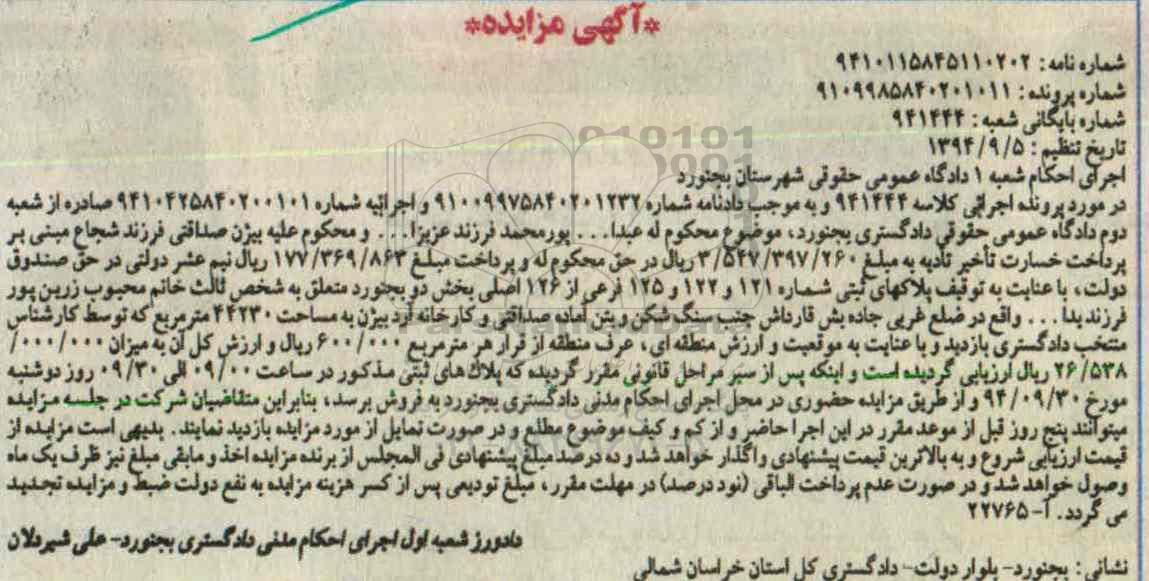 *آگهی مزایده*
شماره نامه: ۹۴۱۰۱۱۵۸۴۵۱۱۰۲۰۲
شماره پرونده: ۹۱۰۹۹۸۵۸۴۰۲۰۱۰۱۱
شماره بایگانی شعبه: ۹۴۱۴۴۴
تاریخ تنظیم: ۱۳۹۴/۹/۵
اجرای احکام شعبه ۱ دادگاه عمومی حقوقی شهرستان بجنورد
در مورد پرونده اجرائی کلاسه ۹۴۱۴۴۴ و به موجب دادنامه شماره ۹۱۰۰۹۹۷۵۸۴۰۲۰۱۲۳۲ و اجرائیه شماره ۹۴۱۰۴۲۵۸۴۰۲۰۰۱۰۱ صادره از شعبه
دوم دادگاه عمومی حقوقی دادگستری بجنورد، موضوع محکوم له عبدا... پورمحمد فرزند عزیزا... و محکوم علیه بیژن صداقتی فرزند شجاع مبنی بر
پرداخت خسارت تأخیر تأدیه به مبلغ ۳/۵۴۷/۳۹۷/۲۶۰ ریال در حق محکوم له و پرداخت مبلغ ۱۷۷/۳۶۹/۸۶۳ ریال نیم عشر دولتی در حق صندوق
دولت، با عنایت به توقیف پلاکهای ثبتی شماره ۱۲۱ و ۱۲۲ و ۱۲۵ فرعی از ۱۲۶ اصلی بخش دو بجنورد متعلق به شخص ثالث خانم محبوب زرین پور
فرزند یدا... واقع در ضلع غربی جاده بش قارداش جنب سنگ شکن و بتن آماده صداقتی و کارخانه آرد بیژن به مساحت ۴۴۲۳۰ مترمربع که توسط کارشناس
منتخب دادگستری بازدید و با عنایت به موقعیت و ارزش منطقه ای، عرف منطقه از قرار هر مترمربع ۶۰۰/۰۰۰ ریال و ارزش کل آن به میزان ۰۰۰/۰۰۰/
۲۶/۵۳۸ ریال ارزیابی گردیده است و اینکه پس از سیر مراحل قانونی مقرر گردیده که پلاک های ثبتی مذکور در ساعت ۰۹/۰۰ الی ۰۹/۳۰ روز دوشنبه
مورخ ۹۴/۰۹/۳۰ و از طریق مزایده حضوری در محل اجرای احکام مدنی دادگستری بجنورد به فروش برسد، بنابراین متقاضیان شرکت در جلسه مزایده
میتوانند پنج روز قبل از موعد مقرر در این اجرا حاضر و از کم و کیف موضوع مطلع و در صورت تمایل از مورد مزایده بازدید نمایند. بدیهی است مزایده از
قیمت ارزیابی شروع و به بالاترین قیمت پیشنهادی واگذار خواهد شد و ده درصد مبلغ پیشنهادی فی المجلس از برنده مزایده اخذ و مابقی مبلغ نیز ظرف یک ماه
وصول خواهد شد و در صورت عدم پرداخت الباقی (نود درصد) در مهلت مقرر، مبلغ تودیعی پس از کسر هزینه مزایده به نفع دولت ضبط و مزایده تجدید
می گردد. آ-۲۲۷۶۵
دادورز شعبه اول اجرای احکام مدنی دادگستری بجنورد- علی شیردلان
نشانی: بجنورد- بلوار دولت- دادگستری کل استان خراسان شمالی